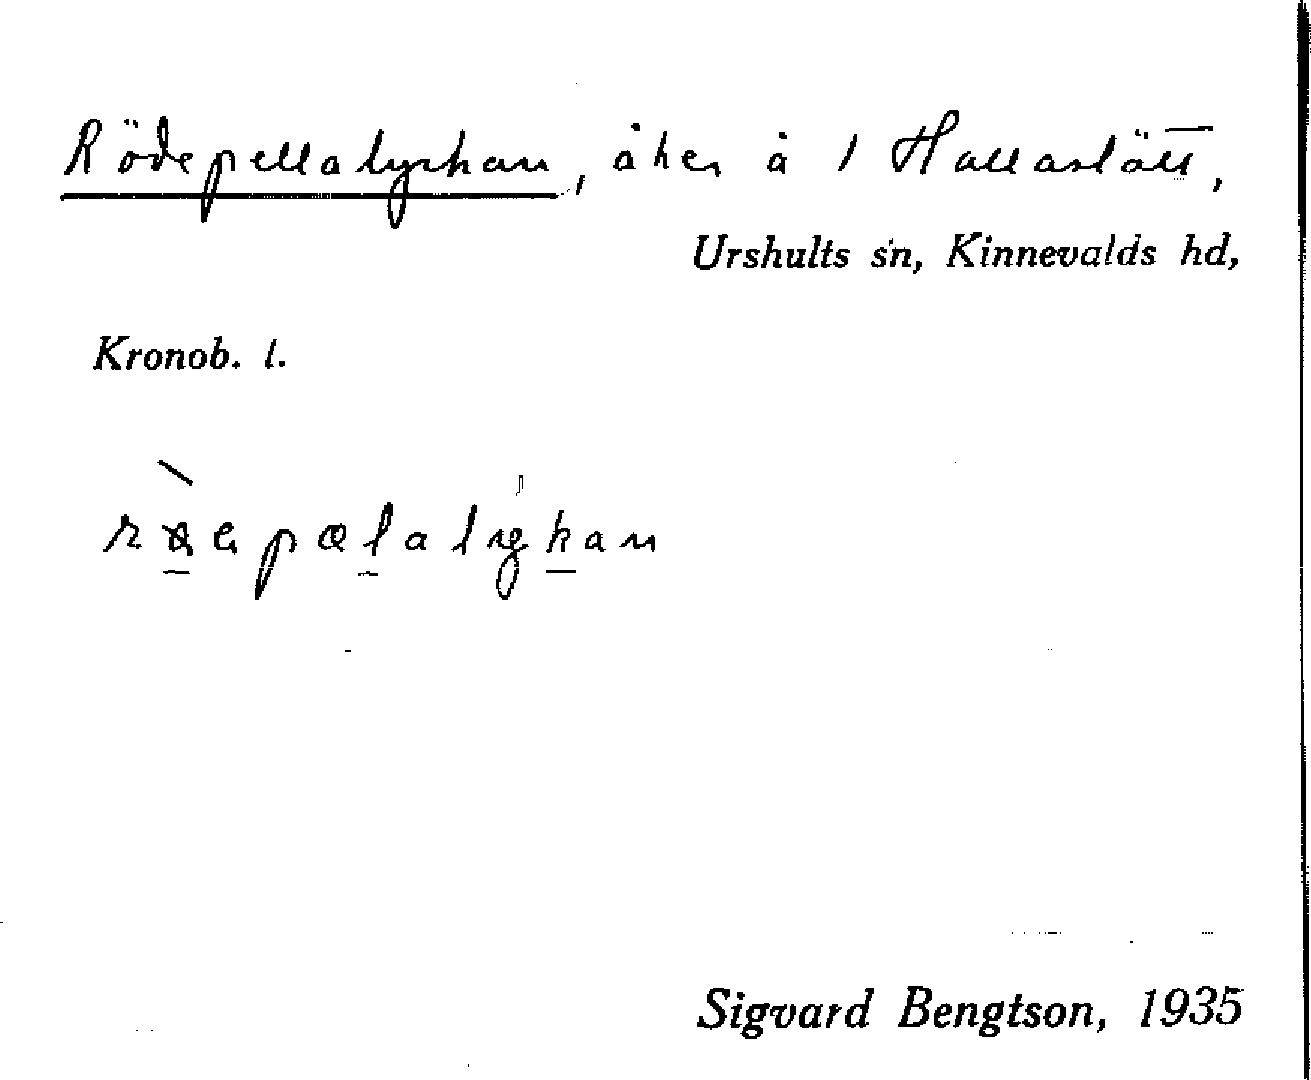 Rödepellalyckan, åker å 1 Hallaslätt,
Urshults sn, Kinnevalds hd,
Kronob. l.
Sigvard Bengtson, 1935